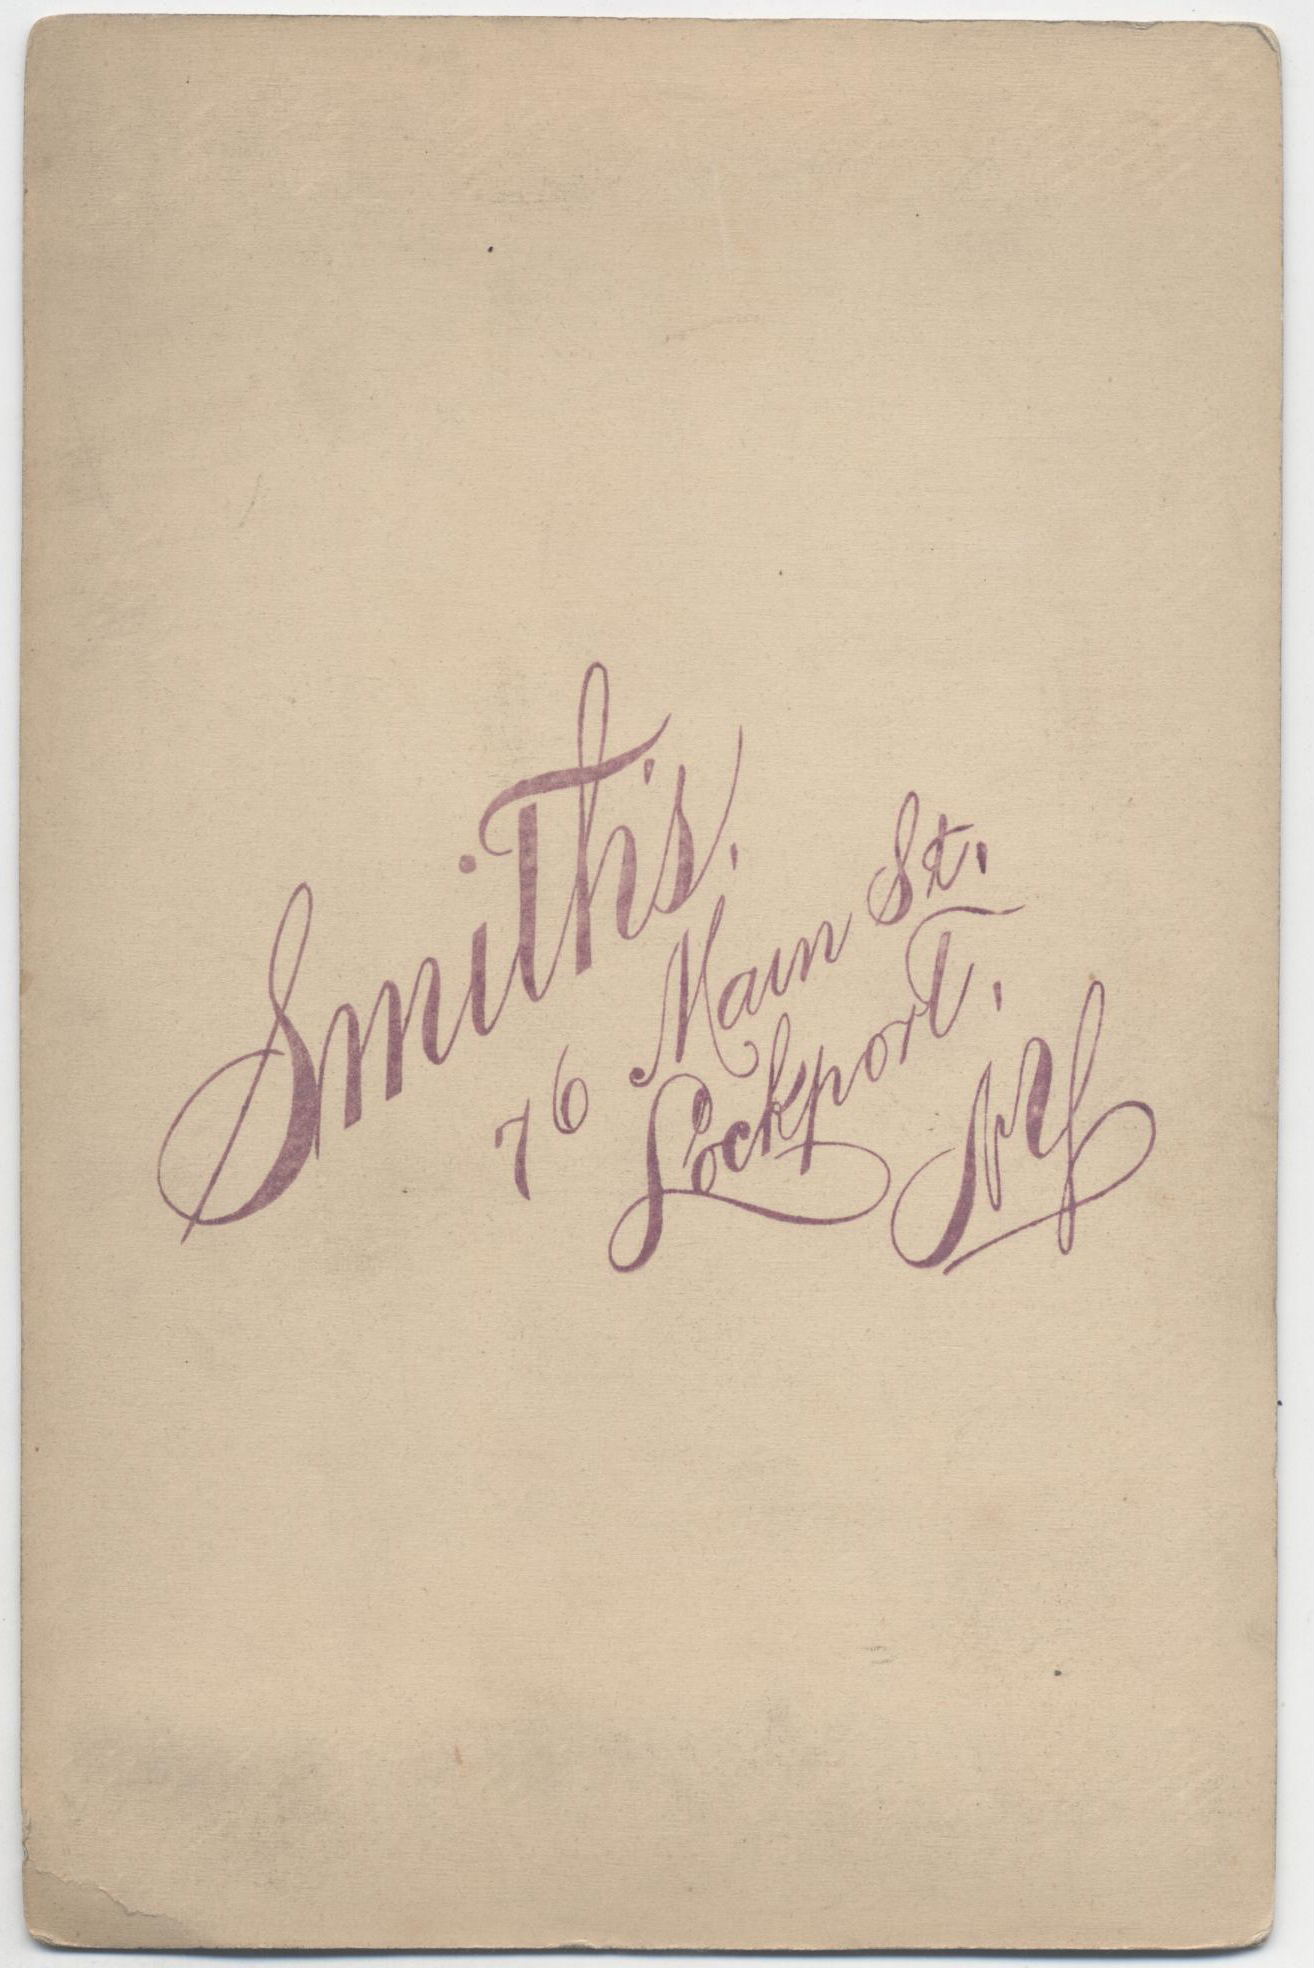 Smith's,
76 Main St.,
Lockport,
NY